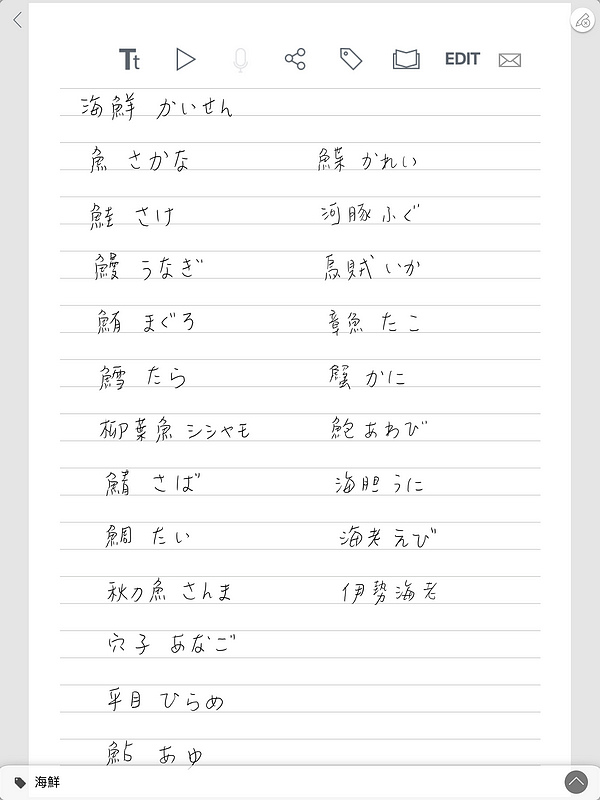 Tt EDIT
海鮮 かいせん
魚 さかな
鮭 さけ
鰻 うなぎ
鮪 まぐろ
鱈 たら
柳葉魚 シシャモ
鯖 さば
鯛 たい
秋刀魚 さんま
穴子 あなご
平目 ひらめ
鮎 あゆ
鰈 かれい
河豚 ふぐ
烏賊 いか
章魚 たこ
蟹 かに
鮑 あわび
海胆 うに
海老 えび
伊勢海老
海鮮